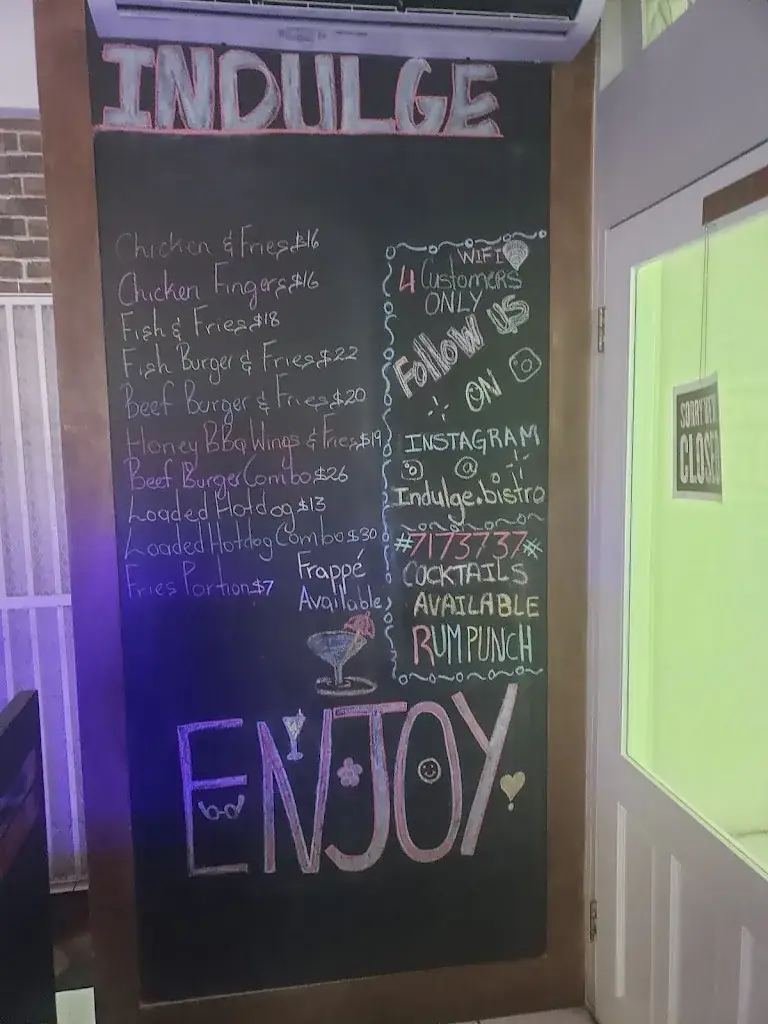 INDULGE
Chicken & Fries $16
Chicken Fingers $16
Fish & Fries $18
Fish Burger & Fries $22
Beef Burger & Fries $20
Honey BBQ Wings & Fries $19
Beef Burger Combo $26
Loaded Hotdog $13
Loaded Hotdog Combo $30
Fries Portion $7
Frappé
Available
WIFI
4 Customers
ONLY
Follow US
ON
INSTAGRAM
@
Indulge.bistro
#7173737#
COCKTAILS
AVAILABLE
RUM PUNCH
ENJOY
SORRY WE'RE
CLOSED